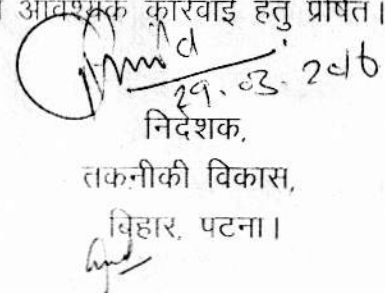 आवश्यक कार्रवाई हेतु प्रेषित।
29.03.2016
निदेशक,
तकनीकी विकास,
बिहार, पटना।